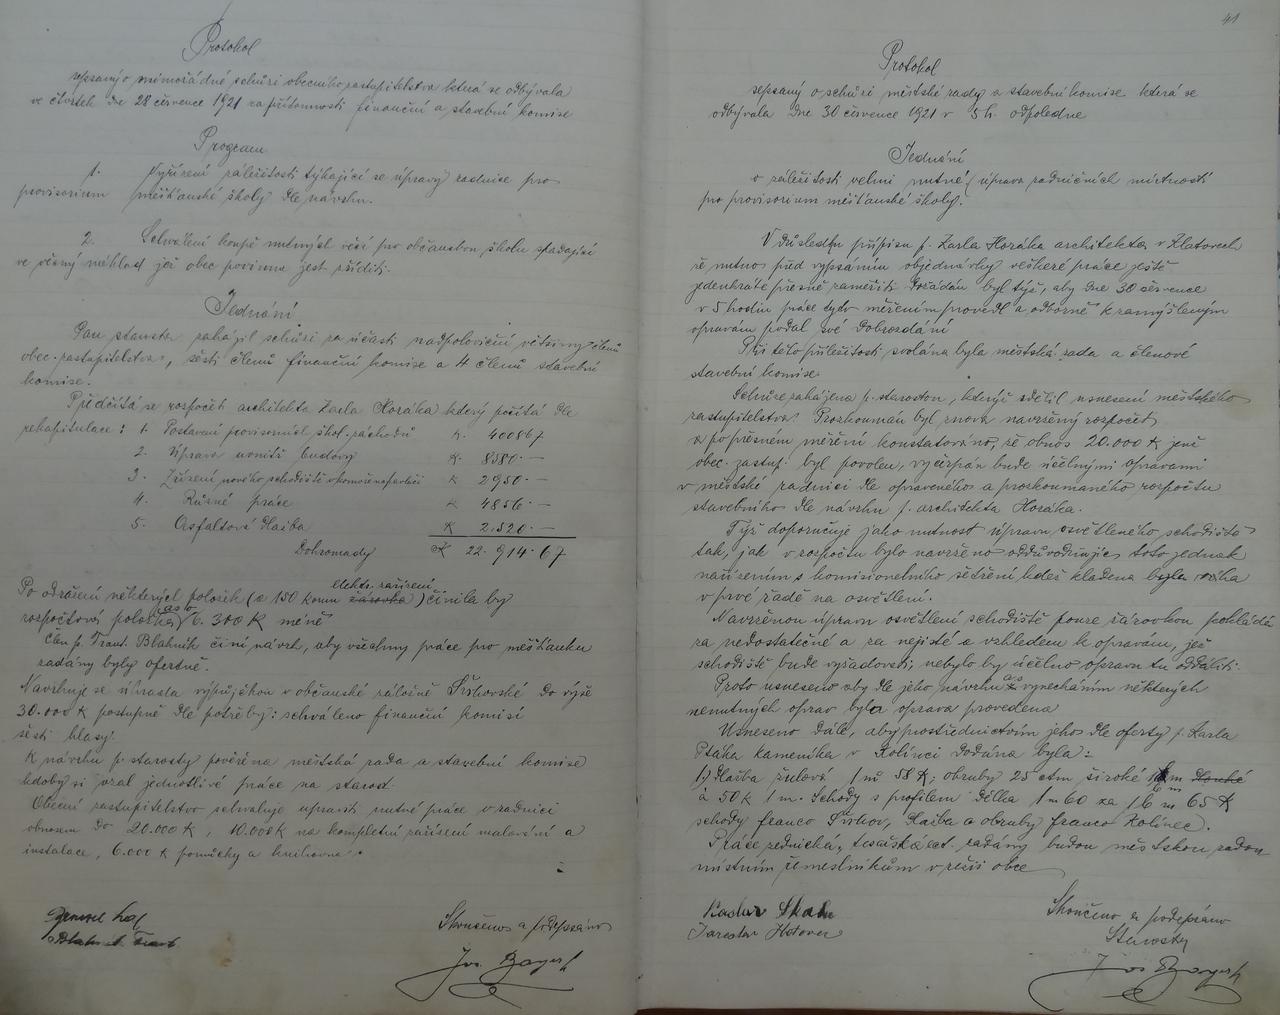 Protokol
sepsaný o mimořádné schůzi obecního zastupitelstva která se odbývala
ve čtvrtek dne 28 července 1921 za přítomnosti finanční a stavební komise
Program
1. Vyřízení záležitosti týkající se úpravy radnice pro
provisorium měšťanské školy dle návrhu.
2. Schválení koupě nutných věcí pro občanskou školu spadající
ve věcný náklad jež obec povinna jest zříditi.
Jednání
Pan starosta zahájil schůzi za účasti nadpoloviční většiny členů
obec. zastupitelstva, šesti členů finanční komise a 4 členů stavební
komise.
Předčítá se rozpočet architekta Karla Horáka který počítá dle
rekapitulace: 1. Postavení provisorních škol. záchodů K. 4008 67
2. Úprava uvnitř budovy K. 8580.—
3. Zřízení nového schodiště v komoře na parcelci K 2950.—
4. Různé práce K 4856.—
5. Asfaltová dlažba K 2.520.—
Dohromady K 22.914.67
elektr. zařízení
Po odražení některých položek (a 150 korun žárovka) činila by
rozpočtová položka asi o 6.300 K méně
Člen p. Frant. Blahník činí návrh, aby všechny práce pro měšťanku
zadány byly ofertně.
Navrhuje se úhrada výpůjčkou v občanské záložně Švihovské do výše
30.000 K postupně dle potřeby: schváleno finanční komisí
šesti hlasy.
K návrhu p. starosty pověřena městská rada a stavební komise
kdoby si vzal jednotlivé práce na starost.
Obecní zastupitelstvo schvaluje upraviti nutné práce v radnici
obnosem do 20.000 K, 10.000 K na kompletní zařízení malování a
instalace, 6.000 K pomůcky a knihovna.
Skončeno a podepsáno
Blahník Frant
Jos. Bayerl
41
Protokol
sepsaný o schůzi městské rady a stavební komise která se
odbývala dne 30 července 1921 v 5 h. odpoledne
Jednání
v záležitosti velmi nutné (úprava radničních místností
pro provisorium měšťanské školy.
V důsledku přípisu p. Karla Horáka architekta v Klatovech
že nutno před vypsáním objednávky veškeré práce ještě
jedenkráte přesně zaměřiti požádán byl týž, aby dne 30 července
v 5 hodin práce tyto měřením provedl a odborně k zamýšleným
opravám podal své dobrozdání
Při této příležitosti svolána byla městská rada a členové
stavební komise.
Schůze zahájena p. starostou, kterýž sdělil usnesení městského
zastupitelstva. Prozkoumán byl znova navržený rozpočet
a po přesném měření konstatováno, že obnos 20.000 K jenž
obec. zastup. byl povolen, vyčerpán bude účelnými opravami
v městské radnici dle opraveného a prozkoumaného rozpočtu
stavebního dle návrhu p. architekta Horáka.
Týž doporučuje jako nutnost úpravu osvětleného schodiště
tak, jak v rozpočtu bylo navrženo odůvodňujíc toto jednak
nařízením s komisionelního šetření kdež kladena byla váha
v prvé řadě na osvětlení.
Navrženou úpravu osvětlení schodiště pouze žárovkou pokládá
za nedostatečné a za nejisté a vzhledem k opravám, jež
schodiště bude vyžadovati, nebylo by účelno opravu tu oddáliti.
Proto usneseno aby dle jeho návrhu až s vynecháním některých
nenutných oprav byla oprava provedena
Usneseno dále, aby prostřednictvím jeho dle oferty p. Karla
Ptáka kameníka v Kolínci dodána byla:
1) Dlažba žulová 1 m² 58 K; obruby 25 ctm široké 1 bm dlouhé
à 50 K 1 m. Schody s profilem délka 1 m 60 za 1 bm 65 K
schody franco Švihov, dlažba a obruby franco Kolinec.
Práce zednická, tesařská atd. zadány budou městskou radou
místním řemeslníkům v režii obce
Skončeno a podepsáno
Starosta
Jaroslav Hotovec
Jos Bayerl